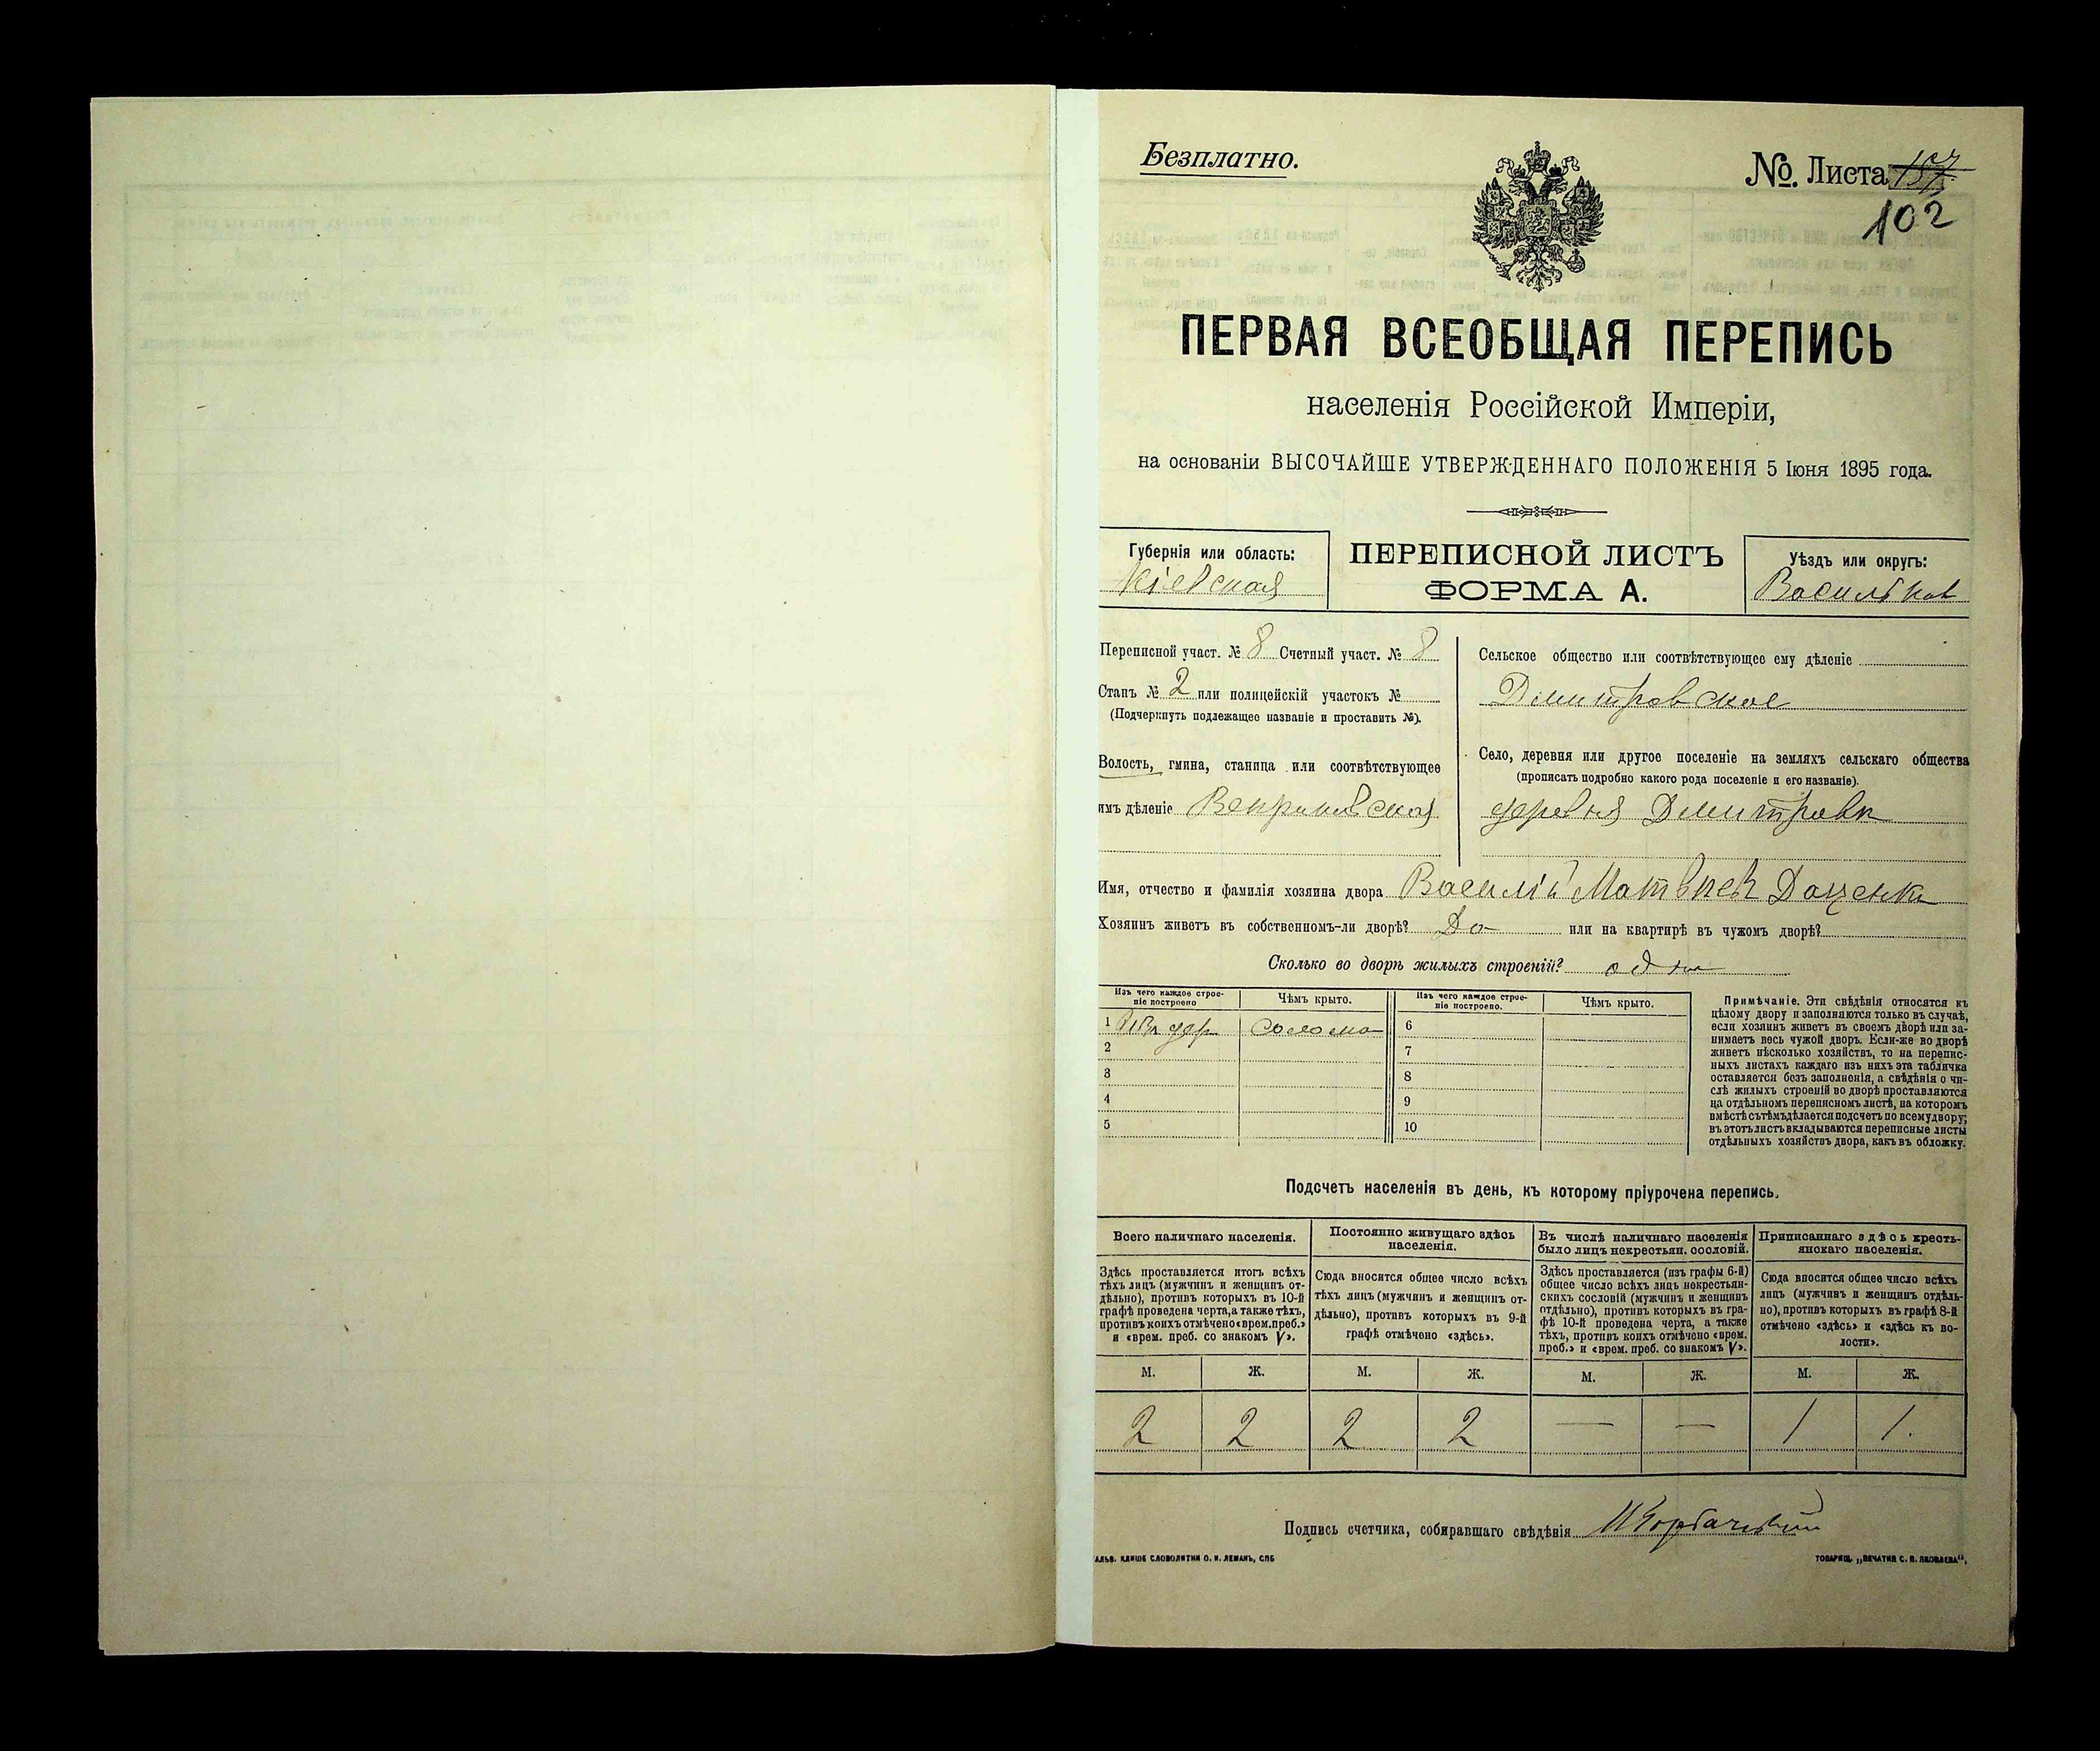 Безплатно.
№. Листа 157
102
ПЕРВАЯ ВСЕОБЩАЯ ПЕРЕПИСЬ
населенія Россійской Имперіи,
на основаніи ВЫСОЧАЙШЕ УТВЕРЖДЕННАГО ПОЛОЖЕНІЯ 5 Іюня 1895 года.
Губернія или область:
Кіевская
ПЕРЕПИСНОЙ ЛИСТЪ
ФОРМА А.
Уѣздъ или округъ:
Васильков
Переписной участ. № 8 Счетный участ. № 8
Станъ № 2 или полицейскій участокъ №
(Подчеркнуть подлежащее названіе и проставить №).
Волость, гмина, станица или соотвѣтствующее
имъ дѣленіе
Сельское общество или соотвѣтствующее ему дѣленіе
Дмитровское
Село, деревня или другое поселеніе на земляхъ сельскаго общества
(прописать подробно какого рода поселеніе и его названіе).
деревня Дмитровка
Имя, отчество и фамилія хозяина двора Василій Матвѣев Доценко
Хозяинъ живетъ въ собственномъ-ли дворѣ? Да или на квартирѣ въ чужомъ дворѣ?
Сколько во дворѣ жилыхъ строеній? одно
Изъ чего каждое строе-
ніе построено
Чѣмъ крыто.
Изъ чего каждое строе-
ніе построено.
Чѣмъ крыто.
1 Изъ дер солома
2
3
4
5
6
7
8
9
10
Примѣчаніе. Эти свѣдѣнія относятся къ
цѣлому двору и заполняются только въ случаѣ,
если хозяинъ живетъ въ своемъ дворѣ или за-
нимаетъ весь чужой дворъ. Если-же во дворѣ
живетъ нѣсколько хозяйствъ, то на перепис-
ныхъ листахъ каждаго изъ нихъ эта табличка
оставляется безъ заполненія, а свѣдѣнія о чи-
слѣ жилыхъ строеній во дворѣ проставляются
на отдѣльномъ переписномъ листѣ, на которомъ
вмѣстѣ съ тѣмъ дѣлается подсчетъ по всему двору;
въ этотъ листъ вкладываются переписные листы
отдѣльныхъ хозяйствъ двора, какъ въ обложку.
Подсчетъ населенія въ день, къ которому пріурочена перепись.
Всего наличнаго населенія.
Постоянно живущаго здѣсь
населенія.
Въ числѣ наличнаго населенія
было лицъ некрестьян. сословій.
Приписаннаго здѣсь кресть-
янскаго населенія.
Здѣсь проставляется итогъ всѣхъ
тѣхъ лицъ (мужчинъ и женщинъ от-
дѣльно), противъ которыхъ въ 10-й
графѣ проведена черта, а также тѣхъ,
противъ коихъ отмѣчено «врем. преб.»
и «врем. преб. со знакомъ V».
Сюда вносится общее число всѣхъ
тѣхъ лицъ (мужчинъ и женщинъ от-
дѣльно), противъ которыхъ въ 9-й
графѣ отмѣчено «здѣсь».
Здѣсь проставляется (изъ графы 6-й)
общее число всѣхъ лицъ некрестьян-
скихъ сословій (мужчинъ и женщинъ
отдѣльно), противъ которыхъ въ гра-
фѣ 10-й проведена черта, а также
тѣхъ, противъ коихъ отмѣчено «врем.
преб.» и «врем. преб. со знакомъ V».
Сюда вносится общее число всѣхъ
лицъ (мужчинъ и женщинъ отдѣль-
но), противъ которыхъ въ графѣ 8-й
отмѣчено «здѣсь» и «здѣсь къ во-
лости».
М. Ж. М. Ж. М. Ж. М. Ж.
2 2 2 2 — — 1 1.
Подпись счетчика, собиравшаго свѣдѣнія
АЛЬВ. КЛИШЕ СЛОВОЛИТНИ О. И. ЛЕМАНЪ, СПБ
ТОВАРИЩ. „ПЕЧАТНЯ С. П. ЯКОВЛЕВА“,